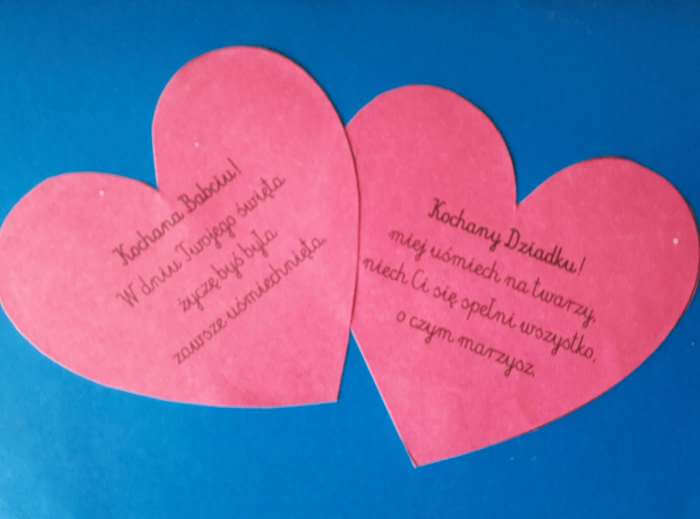 Kochana Babciu!
W dniu Twojego święta
życzę byś była
zawsze uśmiechnięta
Kochany Dziadku!
miej uśmiech na twarzy,
niech Ci się spełni wszystko,
o czym marzysz.